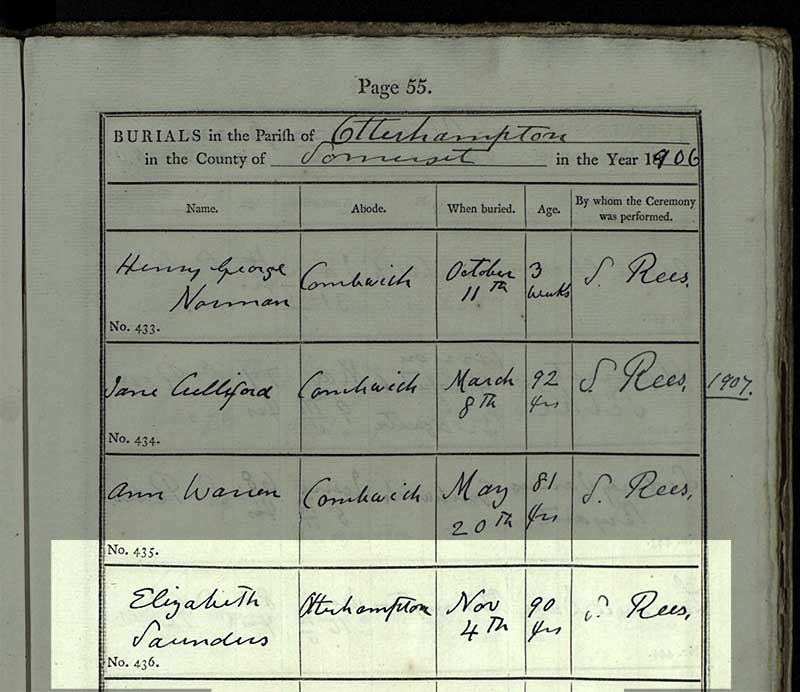 Page 55.
BURIALS in the Pariſh of Otterhampton
in the County of Somerset in the Year 1906
Name. Abode. When buried. Age. By whom the Ceremony was performed.
Henry George Combwich October 3 S. Rees.
Norman 11th weeks
No. 433.
Jane Culliford Combwich March 92 S. Rees. 1907.
8th yrs
No. 434.
Ann Warren Combwich May 81 S. Rees.
20th yrs
No. 435.
Elizabeth Otterhampton Nov 90 S. Rees.
Saunders 4th yrs
No. 436.